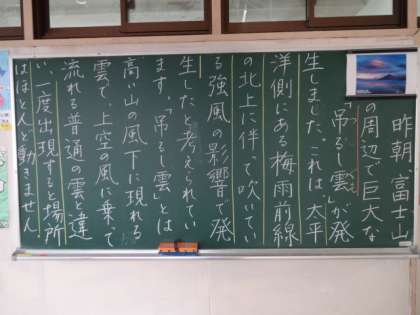 昨朝、富士山
の周辺で巨大な
「吊るし雲」が発
生しました。これは、太平
洋側にある梅雨前線
の北上に伴って吹いてい
る強風の影響で発
生したと考えられてい
ます。「吊るし雲」とは
高い山の風下に現れる
雲で、上空の風に乗って
流れる普通の雲と違
い、一度出現すると場所
はほとんど動きません。